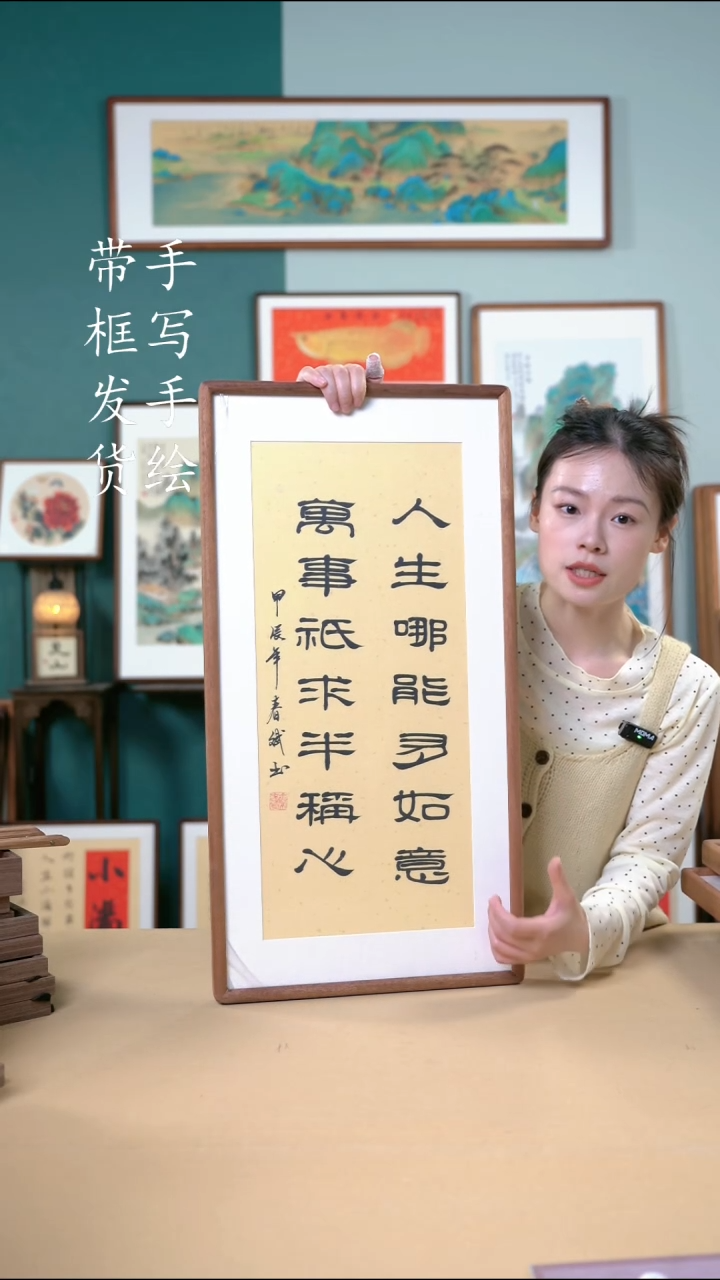 手写手绘
带框发货
人生哪能多如意
萬事祇求半稱心
甲辰年春斌书
MOMA
小满